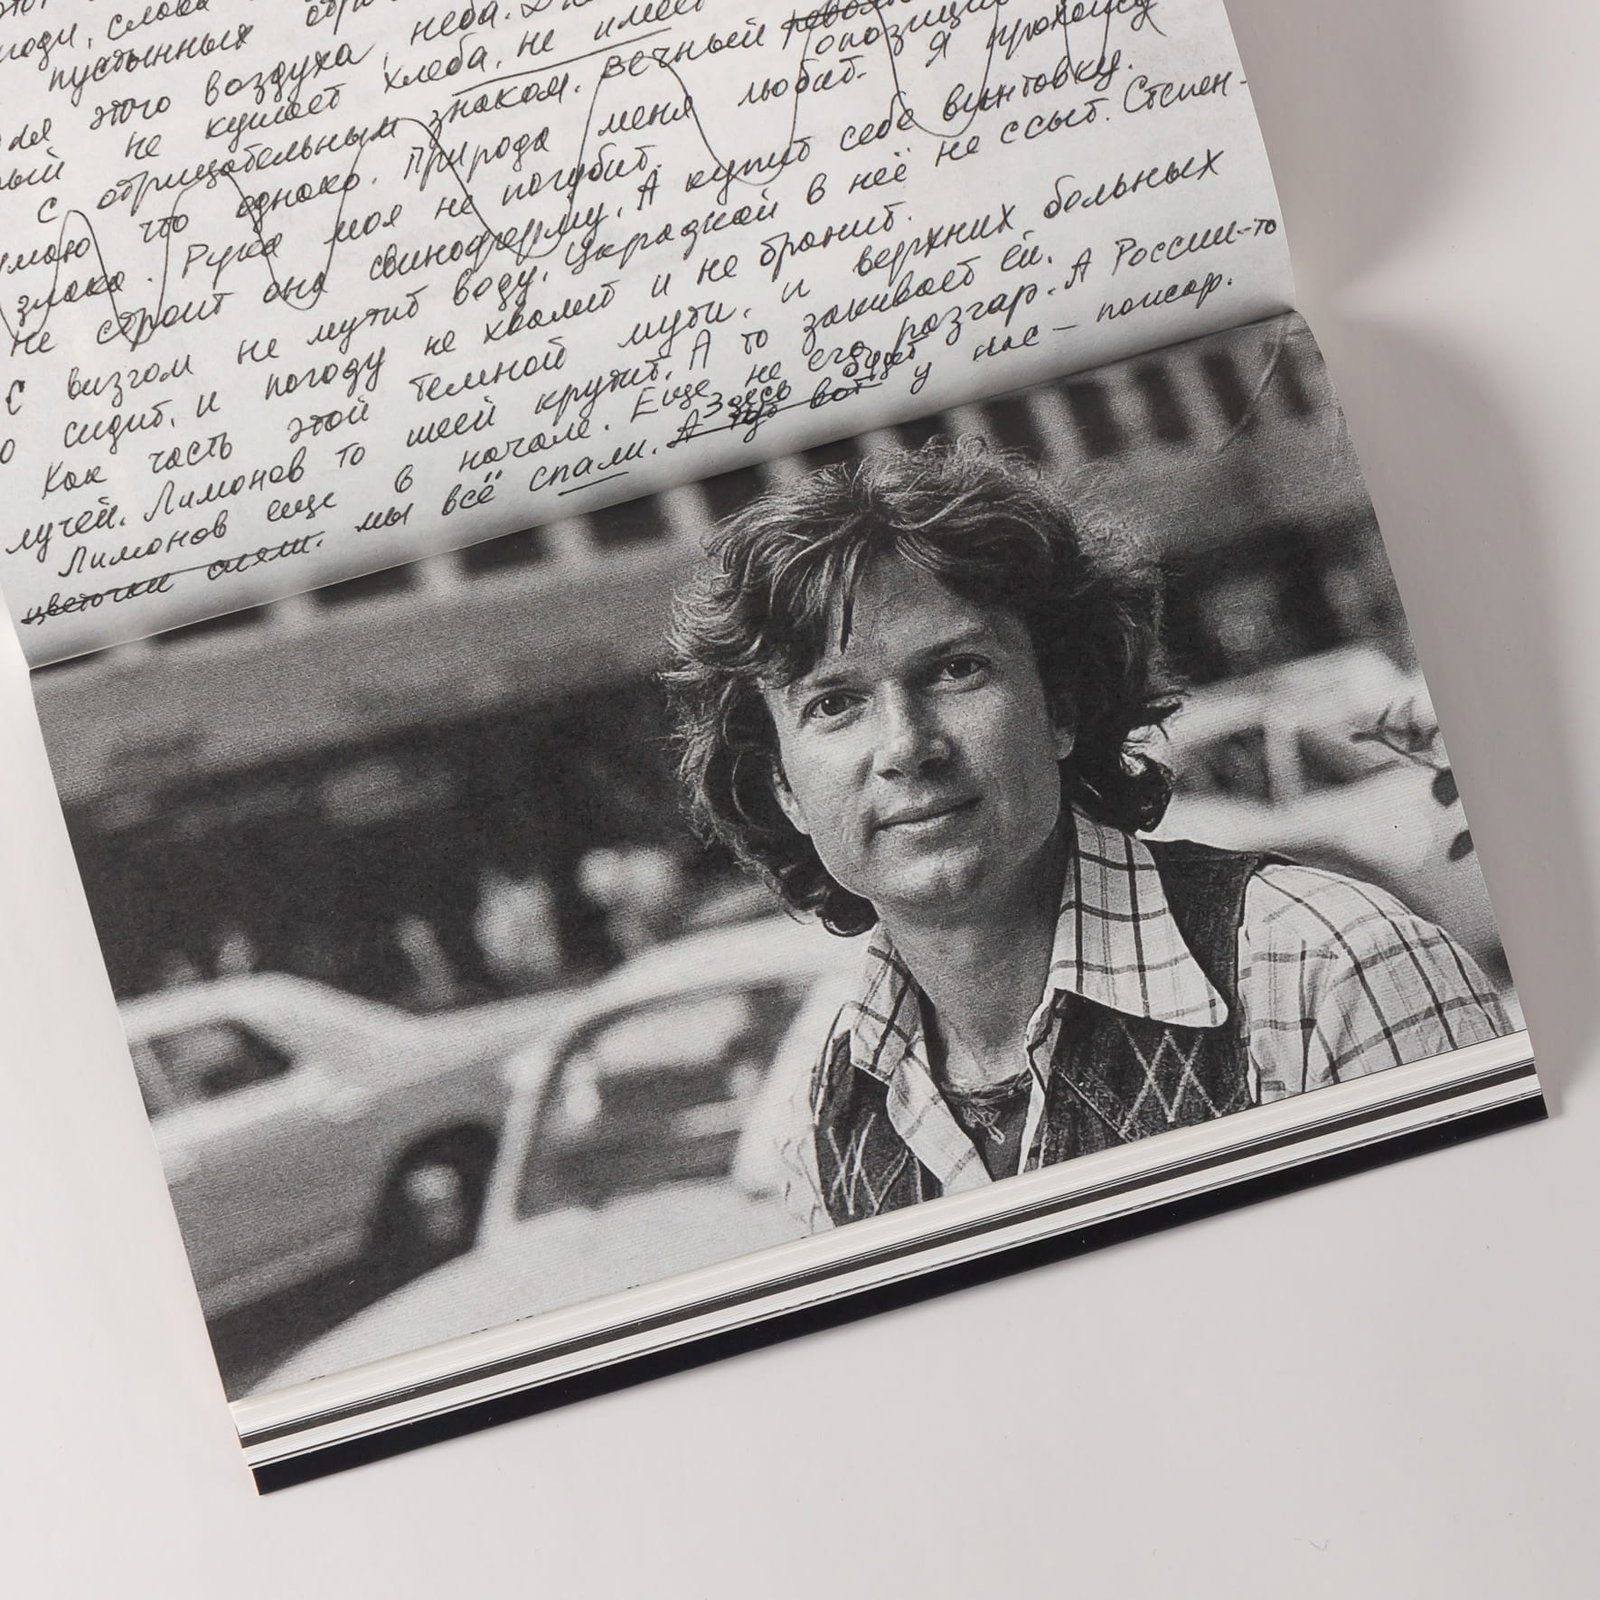 этого
погоди, слова
пустынных
для этого воздуха, неба.
не кушает хлеба, не имеет
с отрицательным знаком. Вечный
что однако. Природа меня любит. Я
знака. Рука моя не погубит.
Не строит она свиноферму. А купит себе винтовку.
С визгом не мутит воду. Украдкой в неё не ссыт. Степен-
о сидит, и погоду не хвалит и не бранит.
Как часть этой темной мути, и верхних больных
лучей. Лимонов то шеей крутит. А то закивает ей.
Лимонов еще в начале. Еще не его разгар. А России-то
цветочки спят. мы всё спали. А тут вот Здесь будет у нас — пожар.